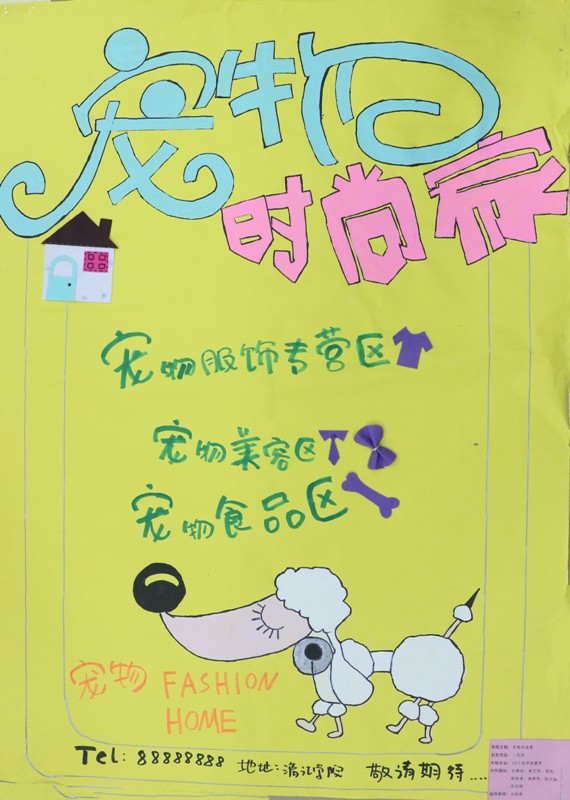 宠物
时尚家
宠物服饰专营区
宠物美容区
宠物食品区
宠物 FASHION
HOME
Tel: 88888888 地址: 浙江学院 敬请期待....